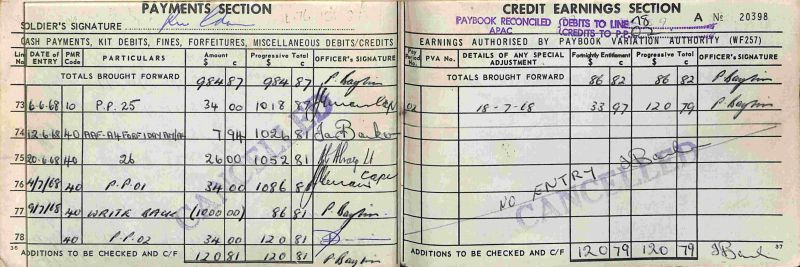 PAYMENTS SECTION
SOLDIER'S SIGNATURE
CASH PAYMENTS, KIT DEBITS, FINES, FORFEITURES, MISCELLANEOUS DEBITS/CREDITS
Line No DATE OF ENTRY PMR Code PARTICULARS Amount $ c Progressive Total $ c OFFICER'S SIGNATURE
TOTALS BROUGHT FORWARD 984 87 984 87 P Baylin
73 6-6-68 10 P.P. 25 34 00 1018 87
74 12-6-68 40 7 94 1026 81
75 20-6-68 40 26 26 00 1052 81
76 4/7/68 40 P.P. 01 34 00 1086 81
77 9/7/68 40 WRITE BACK (1000 00) 86 81 P Baylin
78 40 P.P. 02 34 00 120 81
36 ADDITIONS TO BE CHECKED AND C/F 120 81 120 81 P Baylin
CANCELLED
CREDIT EARNINGS SECTION
PAYBOOK RECONCILED (DEBITS TO LINE 78
APAC (CREDITS TO P.P. 02
A No 20398
EARNINGS AUTHORISED BY PAYBOOK VARIATION AUTHORITY (WF257)
Pay Period No. PVA No. DETAILS OF ANY SPECIAL ADJUSTMENT Fortnightly Entitlement $ c Progressive Total $ c OFFICER'S SIGNATURE
TOTALS BROUGHT FORWARD 86 82 86 82 P Baylin
02 18-7-68 33 97 120 79 P Baylin
NO ENTRY J Bank
CANCELLED
ADDITIONS TO BE CHECKED AND C/F 120 79 120 79 J Bank
37